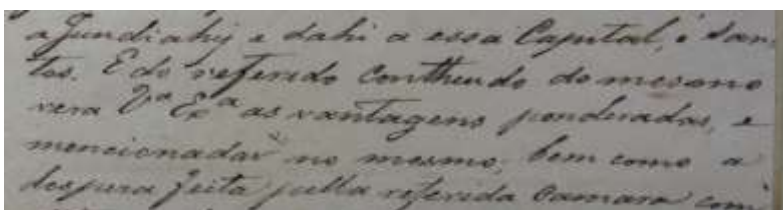 a Jundiahy e dahi a essa Capital, e San
tos. E do referido Conttheudo do mesmo
vera Vª Exª as vantagens ponderadas, e
mencionadas no mesmo, bem como a
despeza feita pella referida Camara com